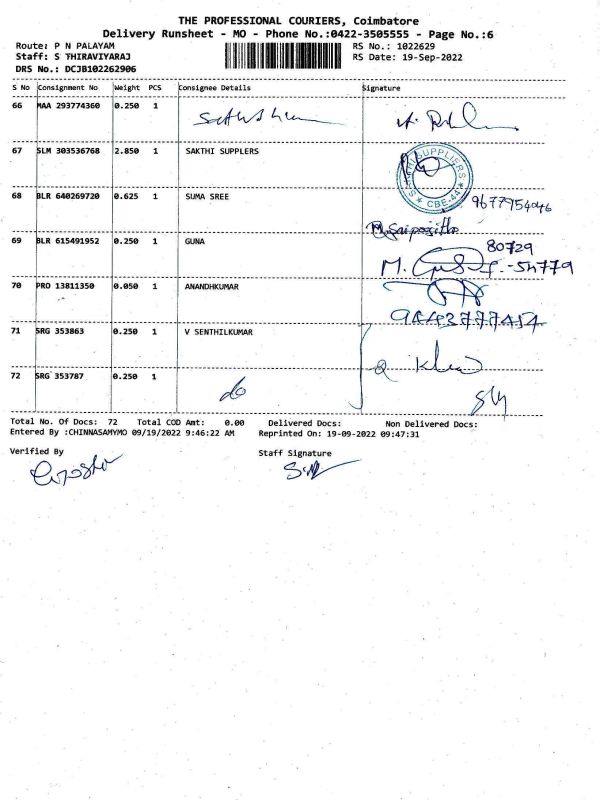 THE PROFESSIONAL COURIERS, Coimbatore
Delivery Runsheet - MO - Phone No.:0422-3505555 - Page No.:6
Route: P N PALAYAM RS No.: 1022629
Staff: S THIRAVIYARAJ RS Date: 19-Sep-2022
DRS No.: DCJB102262906
S No Consignment No Weight PCS Consignee Details Signature
66 MAA 293774360 0.250 1
67 SLM 303536768 2.850 1 SAKTHI SUPPLERS
SUPPLIERS
CBE-44
68 BLR 640269720 0.625 1 SUMA SREE
9677954046
69 BLR 615491952 0.250 1 GUNA
80729
54779
70 PRO 13811350 0.050 1 ANANDHKUMAR
71 SRG 353863 0.250 1 V SENTHILKUMAR
72 SRG 353787 0.250 1
do
Total No. Of Docs: 72 Total COD Amt: 0.00 Delivered Docs: Non Delivered Docs:
Entered By :CHINNASAMYMO 09/19/2022 9:46:22 AM Reprinted On: 19-09-2022 09:47:31
Verified By Staff Signature